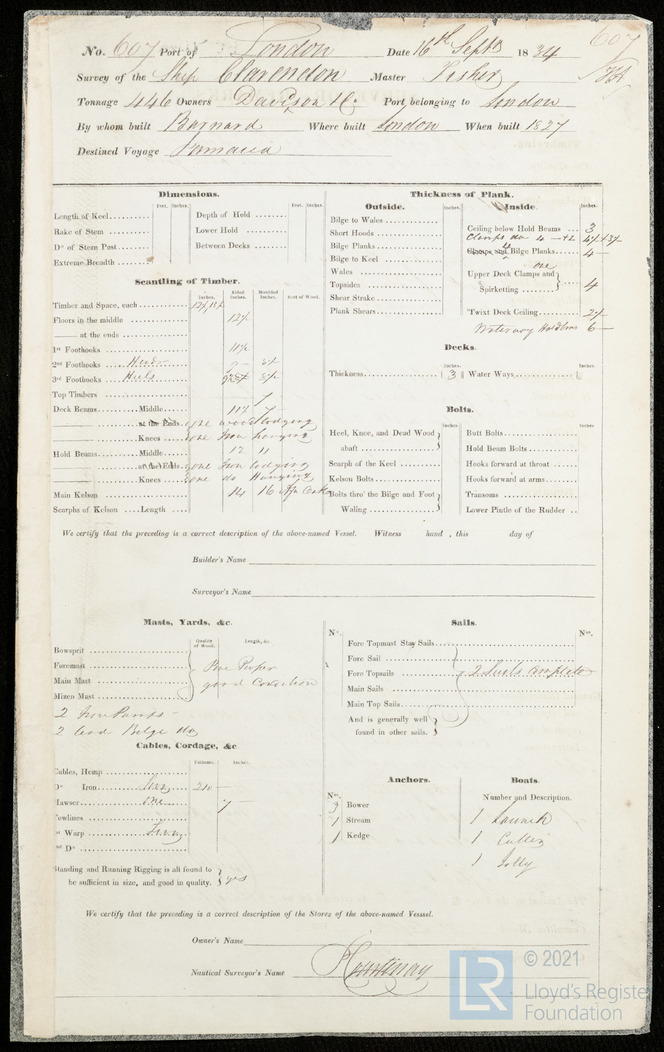 No. 607 Port of London Date 16th Septr 1834 607
Survey of the Ship Clarendon Master Fisher
Tonnage 446 Owners Davison & Co Port belonging to London
By whom built Barnard Where built London When built 1827
Destined Voyage Jamaica
Dimensions.
Feet. Inches. Feet. Inches.
Length of Keel
Rake of Stem
Do of Stem Post
Extreme Breadth
Depth of Hold
Lower Hold
Between Decks
Scantling of Timber.
Inches. Sided Inches. Moulded Inches. Sort of Wood.
Timber and Space, each
Floors in the middle 12½
at the ends
1st Foothooks 11½
2nd Foothooks Heads
3rd Foothooks Heels
Top Timbers
Deck Beams Middle
at the Ends one wood lodging
Knees one Iron hanging
Hold Beams Middle 12 11
at the Ends one Iron lodging
Knees one do Hanging
Main Kelson 14 16 Afn Oak
Scarphs of Kelson Length
Thickness of Plank.
Outside.
Inches.
Bilge to Wales
Short Hoods
Bilge Planks
Bilge to Keel
Wales
Topsides
Shear Strake
Plank Shears
Inside.
Inches.
Ceiling below Hold Beams 3
Clamps do
Clamps and Bilge Planks 4
one
Upper Deck Clamps and
Spirketting 4
'Twixt Deck Ceiling 2½
Waterway Holdbms 6
Decks.
Inches. Inches.
Thickness 3 Water Ways
Bolts.
Inches. Inches.
Heel, Knee, and Dead Wood
abaft
Scarph of the Keel
Kelson Bolts
Bolts thro' the Bilge and Foot
Waling
Butt Bolts
Hold Beam Bolts
Hooks forward at throat
Hooks forward at arms
Transoms
Lower Pintle of the Rudder
We certify that the preceding is a correct description of the above-named Vessel. Witness hand , this day of
Builder's Name
Surveyor's Name
Masts, Yards, &c.
Quality of Wood. Length, &c.
Bowsprit
Foremast
Main Mast
Mizen Mast
good Condition
2 Iron Pumps
2 Lead Bilge do
Cables, Cordage, &c
Fathoms. Inches.
Cables, Hemp
Do Iron 210
Hawser one 7
Towlines
Warp
Do
Standing and Running Rigging is all found to
be sufficient in size, and good in quality. yes
Sails.
No. No.
Fore Topmast Stay Sails
Fore Sail
Fore Topsails 2 Suits complete
Main Sails
Main Top Sails
And is generally well
found in other sails.
Anchors.
No.
3 Bower
1 Stream
1 Kedge
Boats.
Number and Description.
1 Launch
1 Cutter
1 Jolly
We certify that the preceding is a correct description of the Stores of the above-named Vesssel.
Owner's Name
Nautical Surveyor's Name Courtenay
LR
© 2021
Lloyd's Register
Foundation